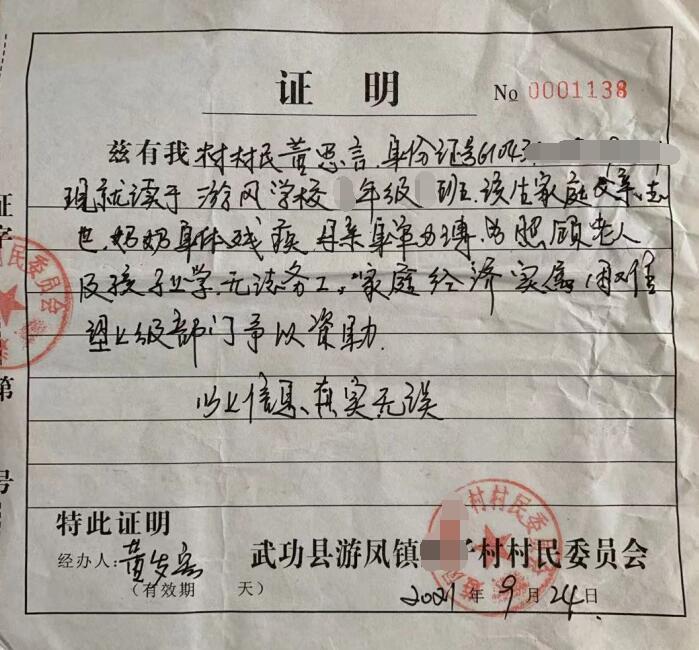 证明
No 0001138
兹有我村村民黄思言,身份证号61043
现就读于游凤学校 年级 班.该生家庭父亲去
世,奶奶身体残疾 母亲身单力薄,为照顾老人
及孩子上学.无法务工。家庭经济实属困难
望上级部门予以资助.
以上信息、真实无误
特此证明
经办人:黄
武功县游凤镇 子村村民委员会
(有效期 天)
2021年9月24日
证字第 号
民委员会
村村民委